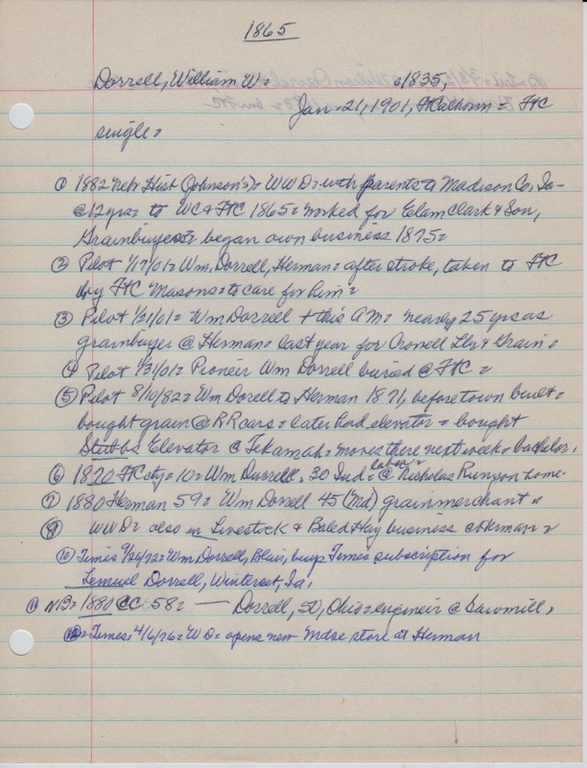 1865
Dorrell, William W= c1835,
Jan. 21, 1901, FtCalhoun = FtC
single =
① 1882 Neb Hist (Johnson's) = WWD= with parents to Madison Co, Ia-
@12yrs= to WC & FtC 1865= worked for Elam Clark & Son,
Grainbuyers= began own business 1875=
② Pilot 1/17/01= Wm, Dorrell, Herman= after stroke, taken to FtC
by FtC Masons= to care for him=
③ Pilot 1/21/01= Wm Dorrell + this AM= nearly 25 yrs as
grainbuyer @ Herman= last year for Crowell Lbr & Grain=
④ Pilot 1/31/01= Pioneer Wm Dorrell buried @ FtC=
⑤ Pilot 8/10/82= Wm Dorell to Herman 1871, before town built=
bought grain @ RR cars= later had elevator= bought
Stubbs Elevator @ Tekamah= moves there next week= bachelor.
⑥ 1870 FtC city= 10= Wm Durrell, 30 Ind= laborer @ Nicholas Runyon home-
⑦ 1880 Herman 59= Wm Dorrell 45 (Md) grainmerchant=
⑧ WWD= also in Livestock & Baled Hay business @Herman=
⑩ Times 9/26/72= Wm Dorrell, Blair, buys Times subscription for
Lemuel Dorrell, Winterset, Ia.
⑪ NB= 1880 CC 58= — Dorrell, 50, Ohio= engineer @ Sawmill,
⑫= Times= 4/6/76= WD= opens new Mdse store at Herman